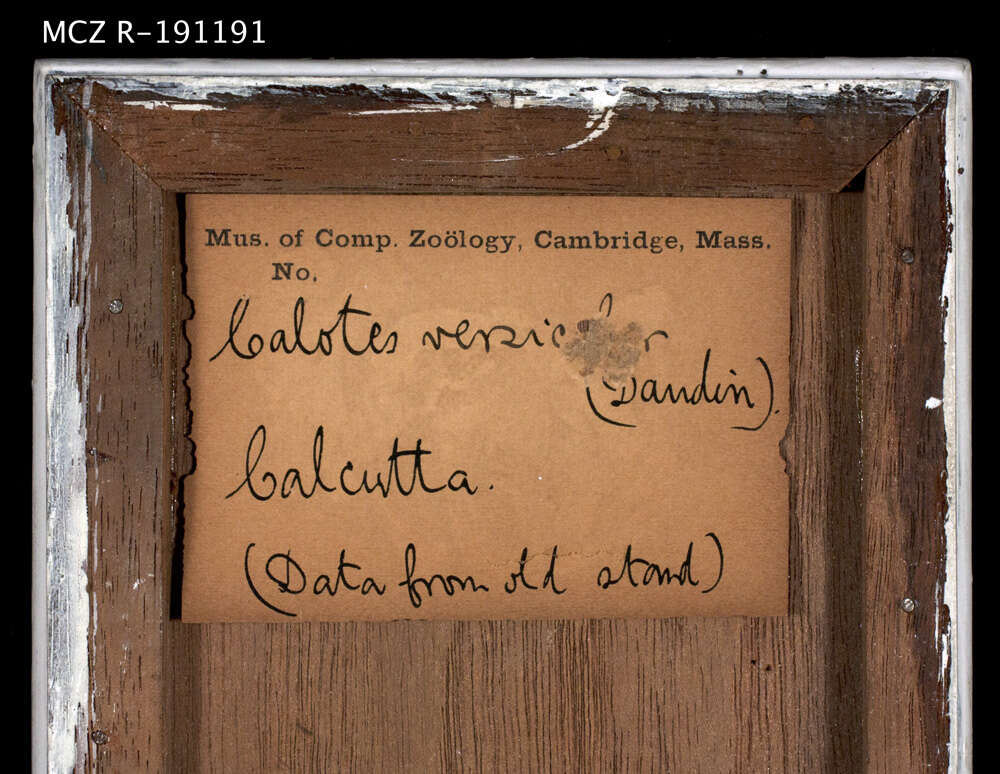 MCZ R-191191
Mus. of Comp. Zoölogy, Cambridge, Mass.
No.
Calotes
(Daudin).
Calcutta.
(Data from old stand)